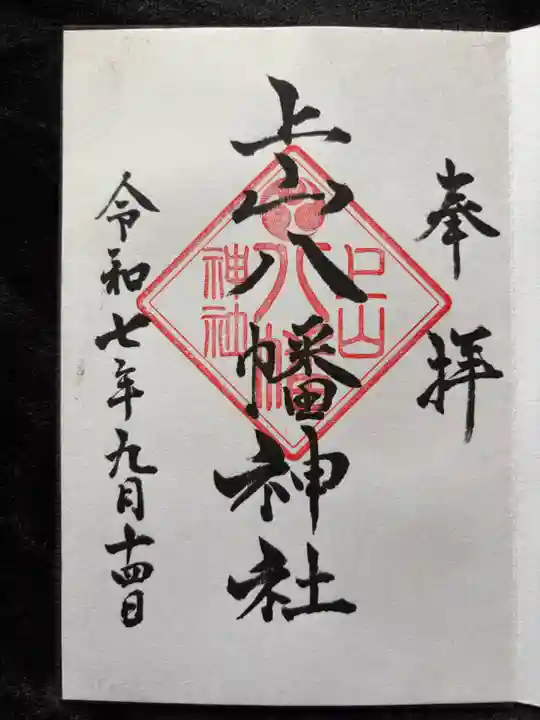 奉拝
上山八幡神社
令和七年九月十四日
八幡
神社